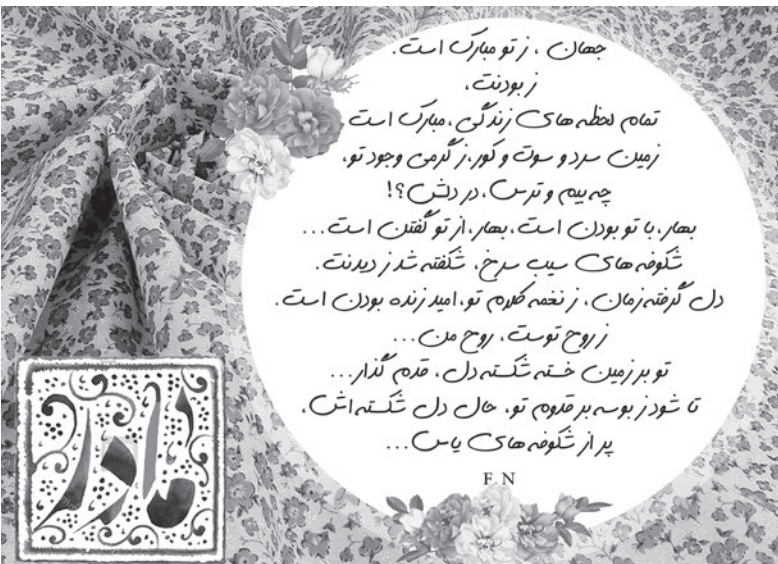 جهان ، ز تو مبارک است.
ز بودنت،
تمام لحظه های زندگی، مبارک است
زمین سرد و سوت و کور، ز گرمی وجود تو،
چه بیم و ترس، در دلش؟!
بهار، با تو بودن است، بهار، از تو گفتن است...
شکوفه های سیب سرخ، شکفته شد ز دیدنت.
دل گرفته زمان، ز نغمه کلام تو، امید زنده بودن است.
ز روح توست، روح من...
تو بر زمین خسته شکسته دل، قدم گذار...
تا شود ز بوسه بر قدوم تو، حال دل شکسته اش،
پر از شکوفه های یاس...
F.N
مادر